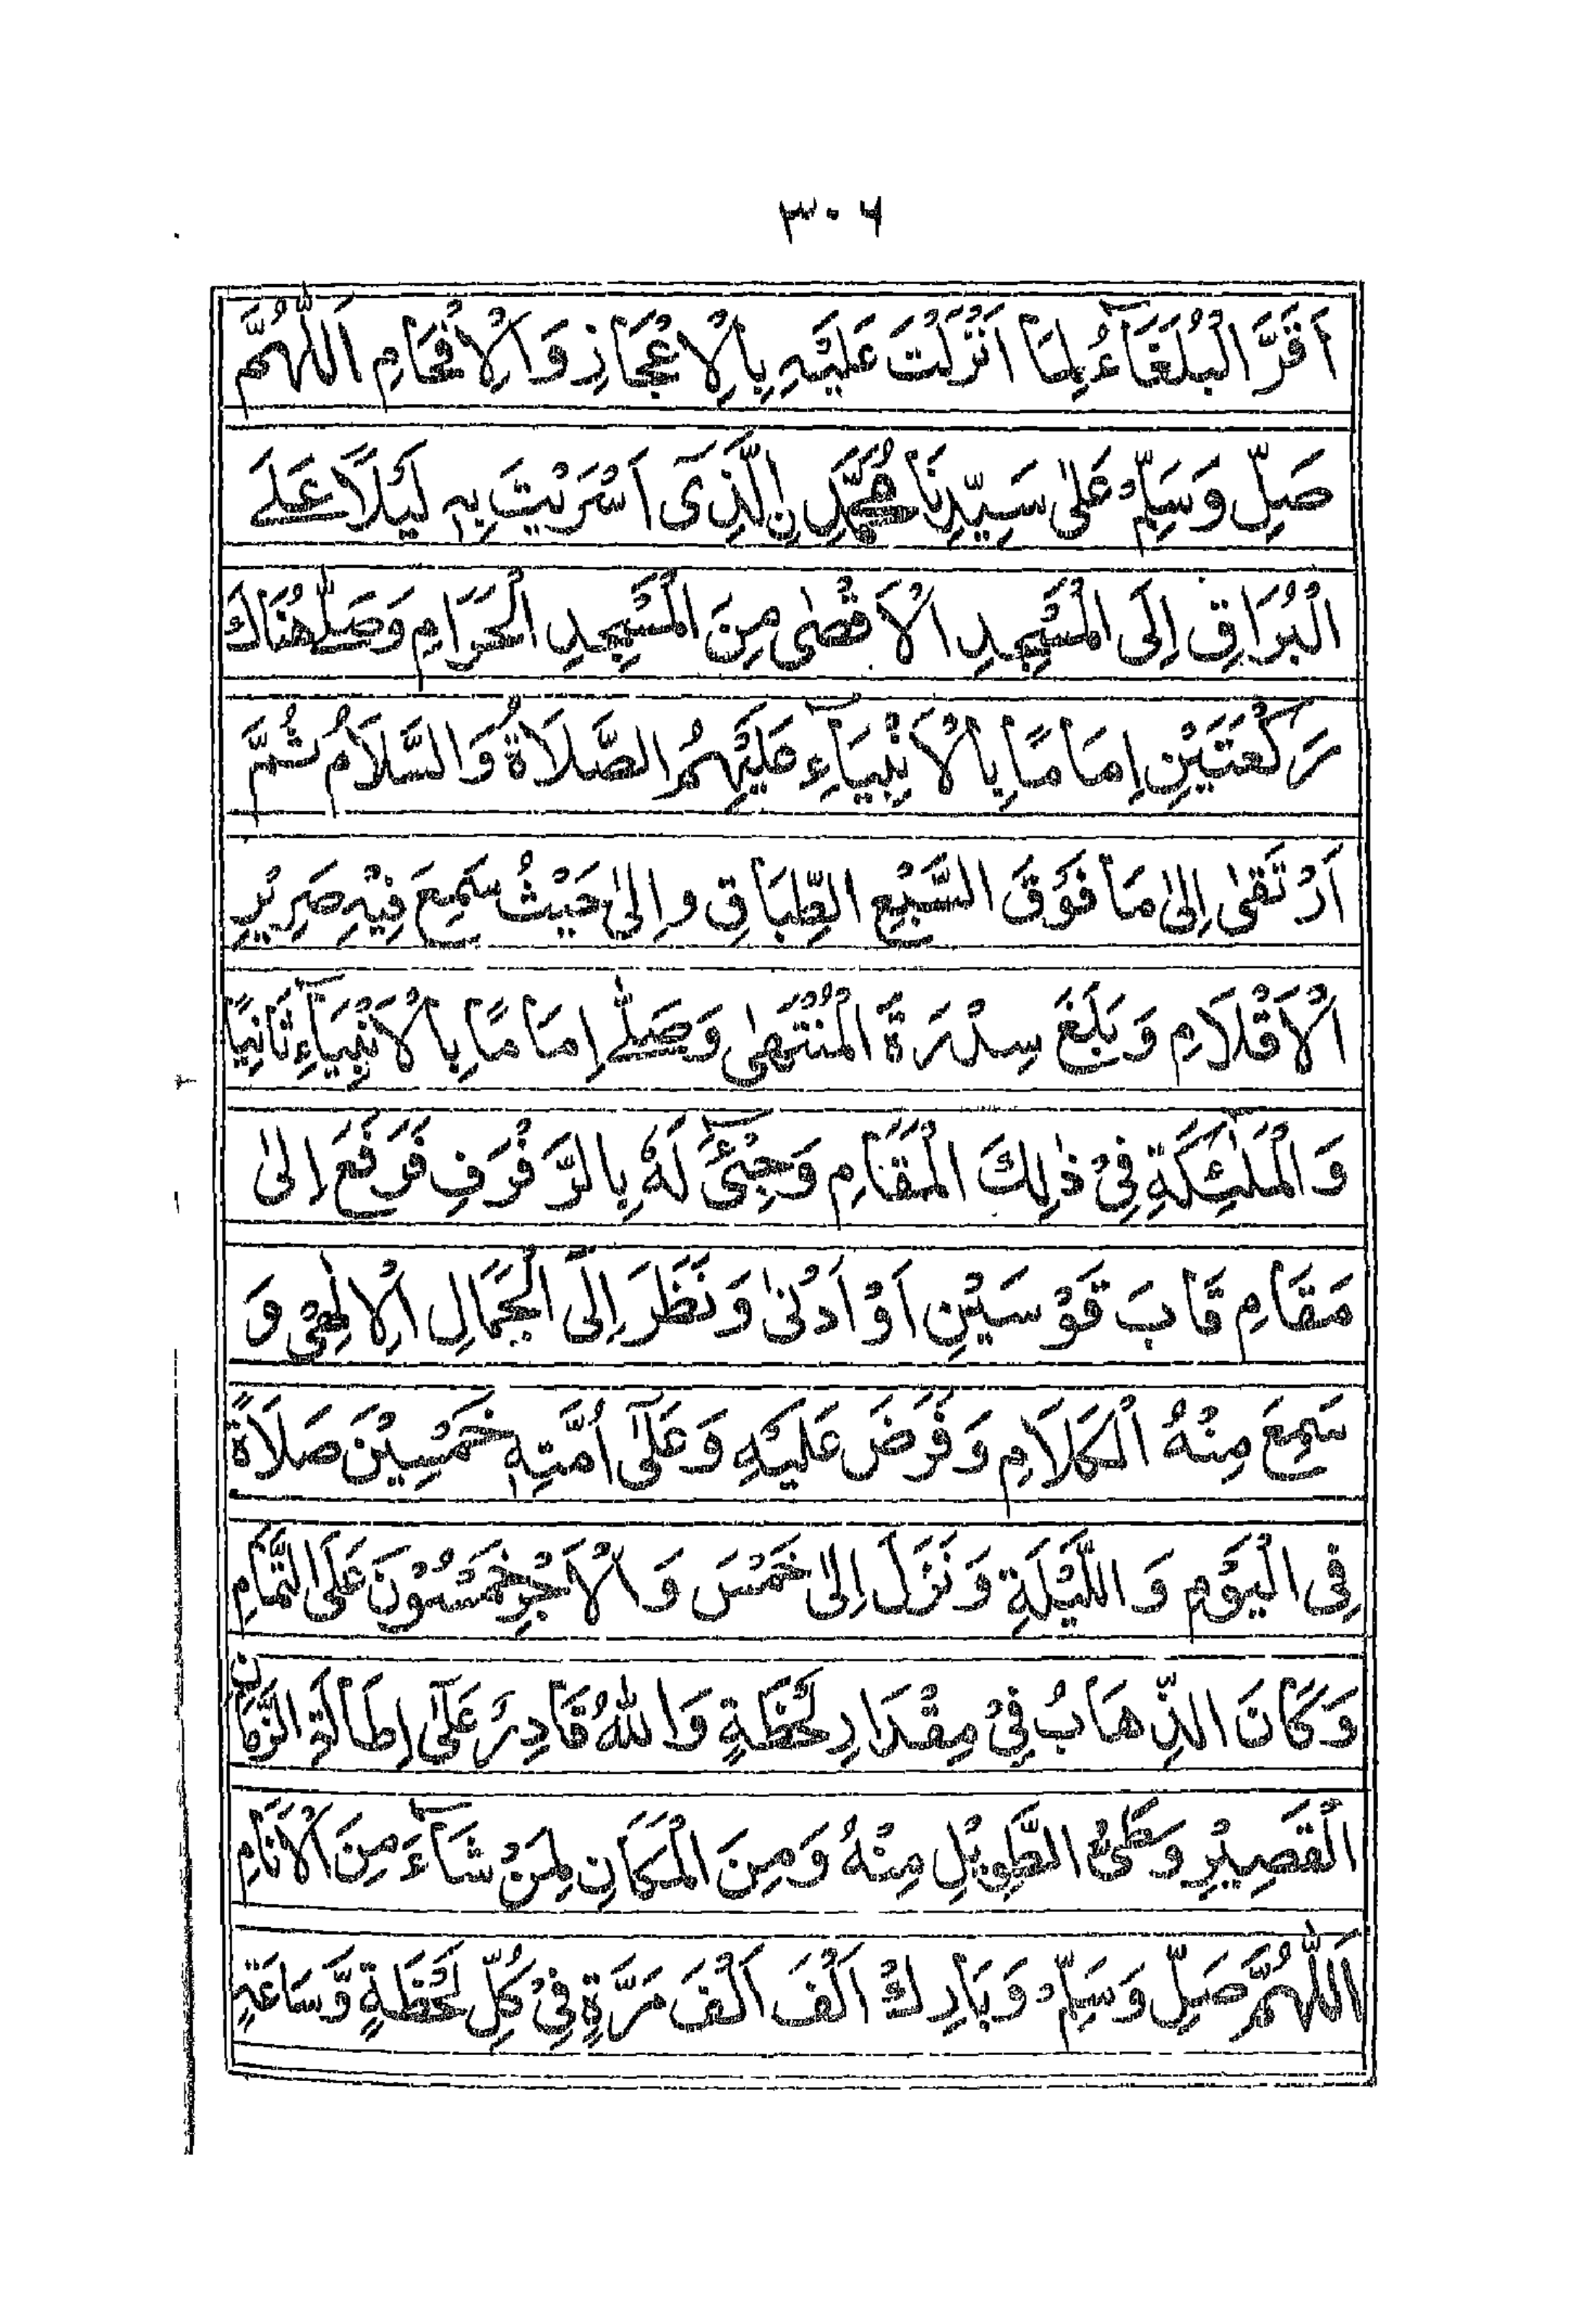 ٣٠٦
اَقَرَّ الْبُلَغَآءُ لِمَا اَنْزَلْتَ عَلَيْهِ بِالْاِعْجَازِ وَالْاِفْحَامِ اَللّٰهُمَّ
صَلِّ وَسَلِّمْ عَلٰى سَيِّدِنَا مُحَمَّدِ نِ الَّذِىٓ اَسْرَيْتَ بِهٖ لَيْلًا عَلَے
الْبُرَاقِ اِلَى الْمَسْجِدِ الْاَقْصٰى مِنَ الْمَسْجِدِ الْحَرَامِ وَصَلّٰے هُنَاكَ
رَكْعَتَيْنِ اِمَامًا بِالْاَنْبِيَآءِ عَلَيْهِمُ الصَّلَاةُ وَالسَّلَامُ ثُمَّ
اَرْتَقٰى اِلٰى مَا فَوْقَ السَّبْعِ الطِّبَاقِ وَاِلٰى حَيْثُ سَمِعَ فِيْهِ صَرِيْرِ
الْاَقْلَامِ وَبَلَغَ سِدْرَةَ الْمُنْتَهٰى وَصَلّٰے اِمَامًا بِالْاَنْبِيَآءِ ثَانِيًا
وَالْمَلٰٓئِكَةِ فِىْ ذٰلِكَ الْمَقَامِ وَجِيْٓئَ لَهٗ بِالرَّفْرَفِ فَرَفَعَ اِلٰى
مَقَامِ قَابَ قَوْسَيْنِ اَوْ اَدْنٰى وَنَظَرَ اِلَى الْجَمَالِ الْاِلٰهِىْ وَ
سَمِعَ مِنْهُ الْكَلَامِ وَفَرَضَ عَلَيْهِ وَعَلٰٓى اُمَّتِهٖ خَمْسِيْنَ صَلَاةً
فِى الْيَوْمِ وَاللَّيْلَةِ وَنَزَلَ اِلٰى خَمْسَ وَالْاَجْرِ خَمْسُوْنَ عَلَى التَّمَامِ
وَكَانَ الذِّهَابُ فِىْ مِقْدَارِ لَحْظَةٍ وَاللهُ قَادِرٌ عَلٰٓى اِطَالَةِ الزَّمَانِ
الْقَصِيْرِ وَطَىْٓءُ الطَّوِيْلِ مِنْهُ وَمِنَ الْمَكَانِ لِمَنْ شَآءَ مِنَ الْاَنَامِ
اَللّٰهُمَّ صَلِّ وَسَلِّمْ وَبَارِكْ اَلْفَ اَلْفَ مَرَّةٍ فِىْ كُلِّ لَحْظَةٍ وَّسَاعَةٍ